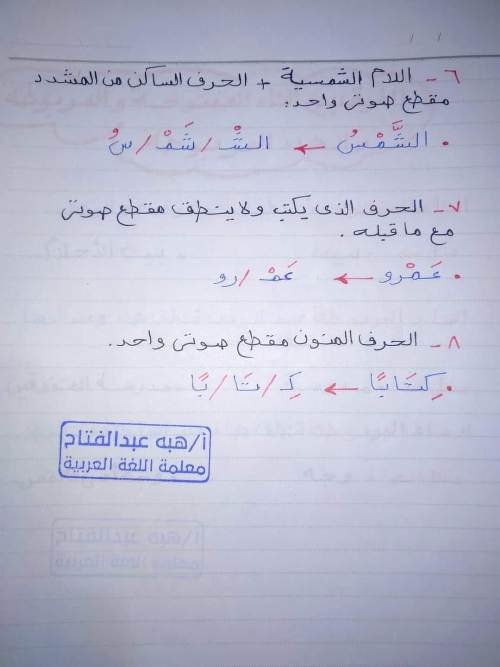 ٦ - اللام الشمسية + الحرف الساكن من المشدد
مقطع صوتى واحد:
• الشَّمْسُ ← الشْـ / شَمْـ / سُ
٧ - الحرف الذى يكتب ولا ينطق مقطع صوتى
مع ما قبله.
• عَمْرو ← عَمْـ / رو
٨ - الحرف المنون مقطع صوتى واحد.
• كِتَابًا ← كِـ / تَا / بًا
أ/هبه عبدالفتاح
معلمة اللغة العربية